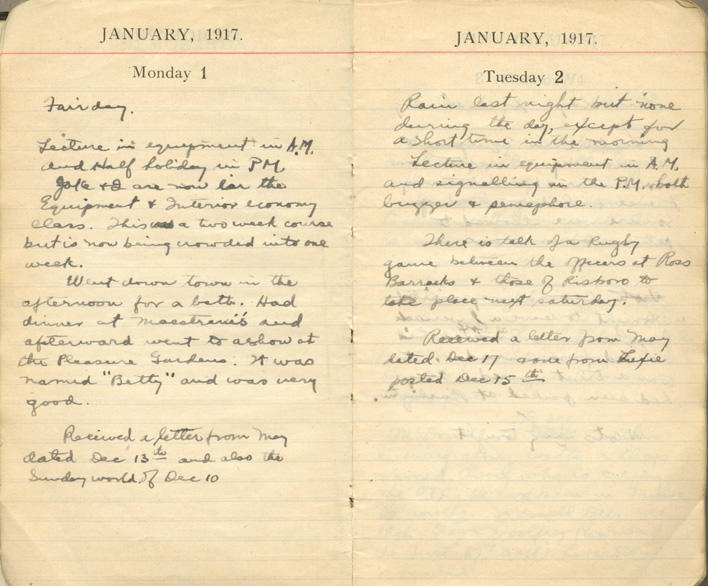 JANUARY, 1917.
Monday 1
Fair day.
Lecture in equipment in A.M.
and Half holiday in P.M.
& I are now in the
Equipment & Interior economy
class. This is a two week course
but is now being crowded into one
week.
Went down town in the
afternoon for a bath. Had
dinner at Maestrani's and
afterward went to a show at
the Pleasure Gardens. It was
named "Betty" and was very
good.
Received a letter from May
dated Dec 13th and also the
Sunday world of Dec 10
JANUARY, 1917.
Tuesday 2
Rain last night but none
during the day, except for
a short time in the morning
Lecture in equipment in A.M.
and signalling in the P.M. both
buzzer & semephore.
There is talk of a Rugby
game between the officers at Ross
Barracks & those of Risboro to
take place next saturday.
Received a letter from May
dated Dec 17 & one from
posted Dec 15th